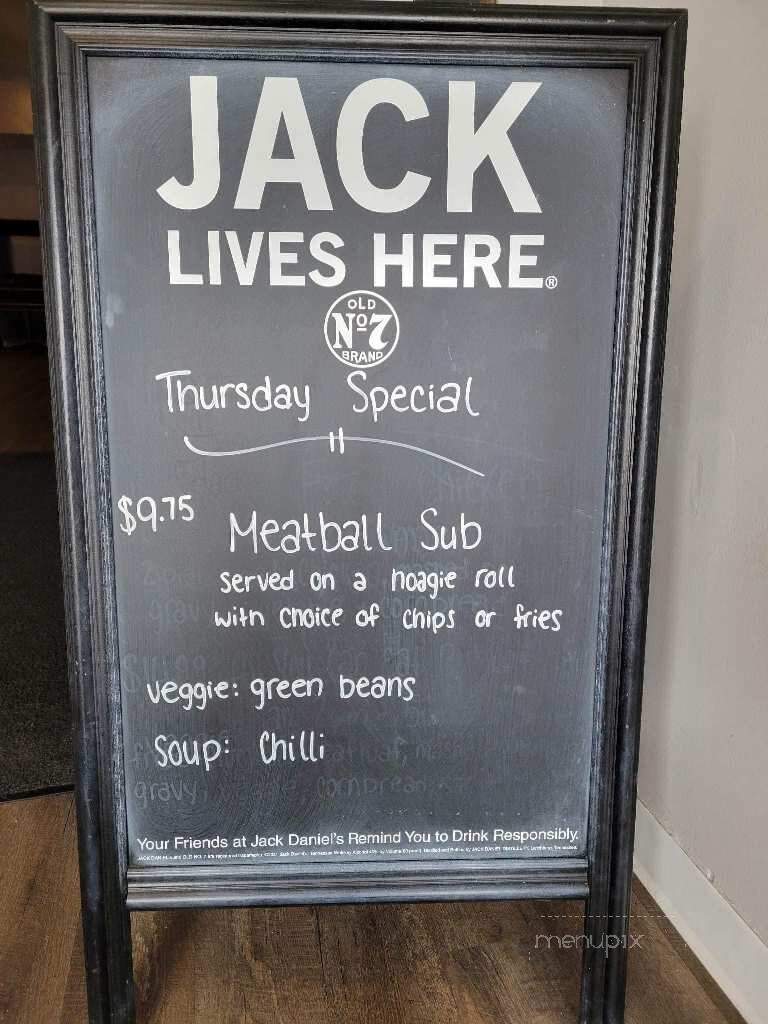 JACK
LIVES HERE®
OLD
Nº7
BRAND
Thursday Special
$9.75
Meatball Sub
served on a hoagie roll
with choice of chips or fries
veggie: green beans
Soup: Chilli
gravy, cornbread
Your Friends at Jack Daniel's Remind You to Drink Responsibly.
menupix